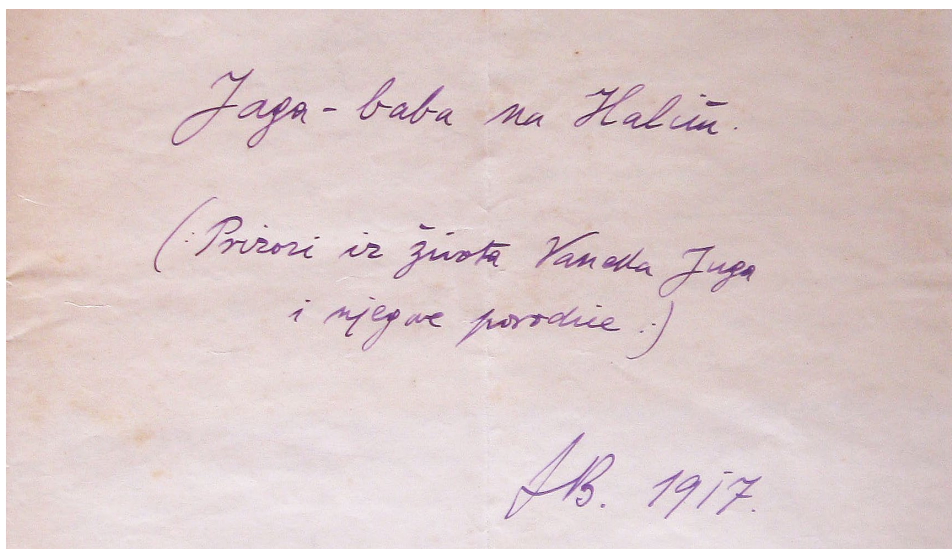 Jaga-baba na
(: Prizori iz života Vaneka Juga
i njegove porodice :)
JB. 1917.